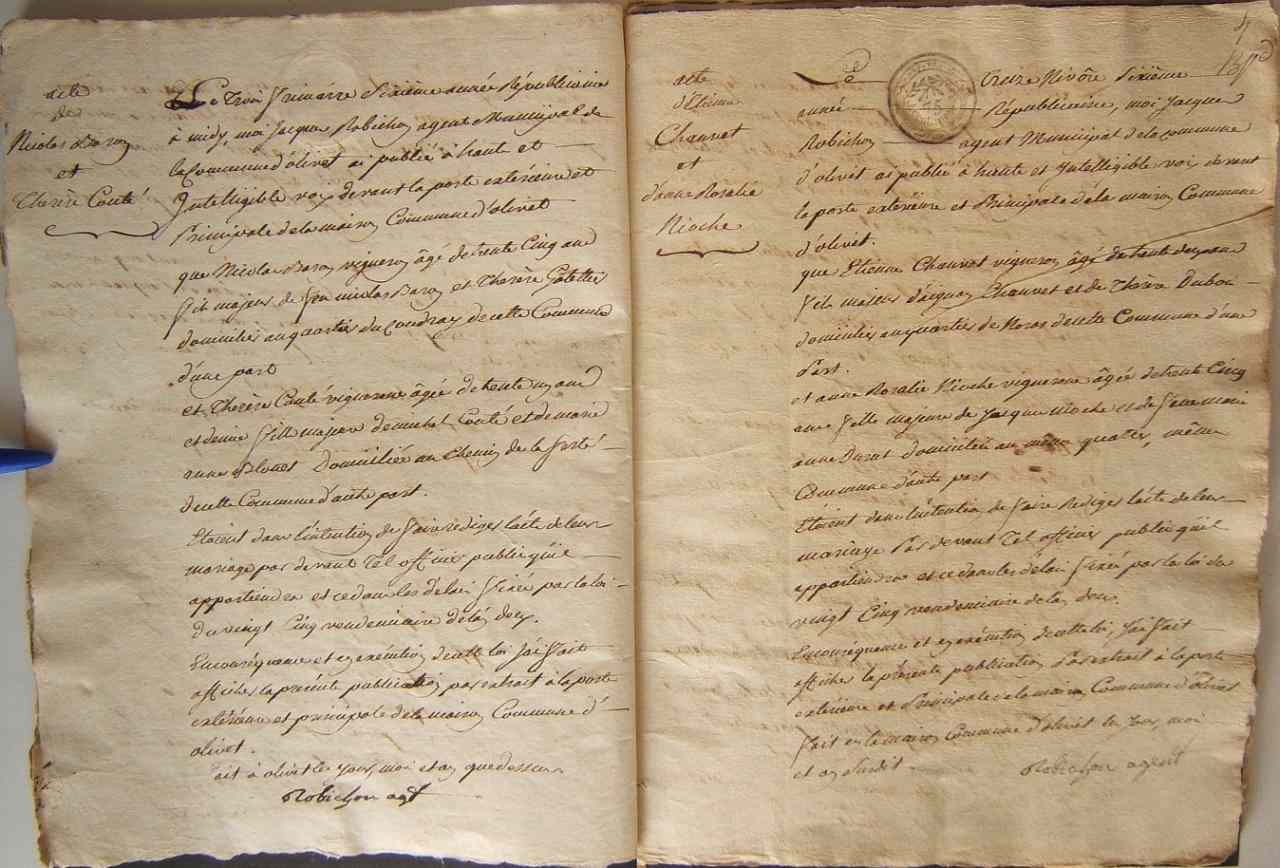 acte
de
Nicolas Baron
et
Thérèse Couté
Le Trois frimaire Sixième année Républicaine
à midy, moi Jacques Robichon agent Municipal de
la Commune d'olivet ai publié à haute et
Intelligible voix devant la porte extérieure et
Principale de la maison Commune d'olivet
que Nicolas Baron vigneron âgé de trente Cinq ans
fils majeur de feu nicolas Baron et Thérèse
domiciliés au quartier du Coudray de cette Commune
d'une part
et Thérèse Couté vigneronne âgée de trente un ans
et demie fille majeure de michel Couté et de marie
anne Domiciliée au Chemin de la ferté
de cette Commune d'autre part.
Etoient dans l'intention de faire rediger l'acte de leur
mariage par devant Tel officier public qu'il
appartiendra et ce dans les délais fixés par la loi
du vingt Cinq vendemiaire de l'an deux.
En conséquence et en exécution de cette loi J'ai fait
afficher la présente publication par extrait à la porte
extérieure et principale de la maison Commune d'
olivet.
fait à olivet les jour, moi et an que dessus
Robichon agt
4
acte
d'Etienne
Chauvet
et
d'anne Rosalie
Nioche
Ce treize Nivôse Sixième
année Républicaine, moi Jacques
Robichon agent Municipal de la commune
d'olivet ai publié à haute et Intelligible voix devant
la porte extérieure et Principale de la maison Commune
d'olivet.
que Etienne Chauvet vigneron âgé de trente deux ans
fils majeur d'acques Chauvet et de Thérèse Dubou
domiciliés au quartier de de cette Commune d'une
Part.
et anne Rosalie Nioche vigneronne âgée de trente Cinq
ans fille majeure de Jacques nioche et de feue marie
anne Durat domiciliée au même quartier, même
Commune d'autre part
Etoient dans l'intention de faire Rediger l'acte de leur
mariage Par devant Tel officier public qu'il
appartiendra et ce dans les délais fixés par la loi du
vingt Cinq vendemiaire de l'an deux.
En conséquence et en exécution de cette loi, J'ai fait
afficher la présente publication Par extrait à la porte
extérieure et Principale de la maison Commune d'olivet
fait en la maison Commune d'olivet les jour, moi
et an Susdit. Robichon agent